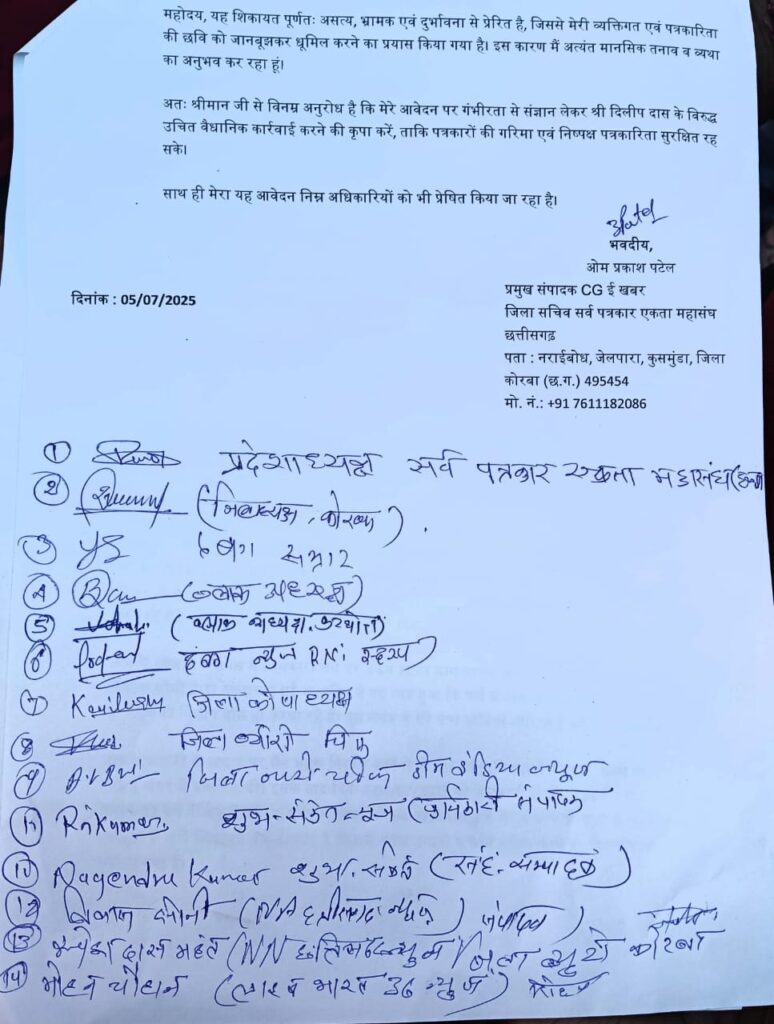 महोदय, यह शिकायत पूर्णतः असत्य, भ्रामक एवं दुर्भावना से प्रेरित है, जिससे मेरी व्यक्तिगत एवं पत्रकारिता
की छवि को जानबूझकर धूमिल करने का प्रयास किया गया है। इस कारण मैं अत्यंत मानसिक तनाव व व्यथा
का अनुभव कर रहा हूं।
अतः श्रीमान जी से विनम्र अनुरोध है कि मेरे आवेदन पर गंभीरता से संज्ञान लेकर श्री दिलीप दास के विरुद्ध
उचित वैधानिक कार्रवाई करने की कृपा करें, ताकि पत्रकारों की गरिमा एवं निष्पक्ष पत्रकारिता सुरक्षित रह
सके।
साथ ही मेरा यह आवेदन निम्न अधिकारियों को भी प्रेषित किया जा रहा है।
भवदीय,
ओम प्रकाश पटेल
दिनांक : 05/07/2025
प्रमुख संपादक CG ई खबर
जिला सचिव सर्व पत्रकार एकता महासंघ
छत्तीसगढ़
पता : नराईबोध, जेलपारा, कुसमुंडा, जिला
कोरबा (छ.ग.) 495454
मो. नं.: +91 7611182086
1 प्रदेशाध्यक्ष सर्व पत्रकार एकता महासंघ
2 (जिलाध्यक्ष, कोरबा).
3 दबंग सम्राट
4 (ब्लाक अध्यक्ष)
5 (ब्लाक अध्यक्ष
6 दबंग न्यूज
7 जिला कोषाध्यक्ष
8 जिला ब्योरो चिफ
9 जिला ब्योरो चीफ इंडिया न्यूज
11 RnKumar शुभ संकेत न्यूज (कार्यकारी संपादक
10 Nagendra Kumar शुभ संकेत (सह. सम्पादक)
12 (NN छत्तीसगढ़ न्यूज) संपादक
13 दास महंत (NN न्यूज) जिला ब्यूरो कोरबा
14 मोहन चौहान (लाइव भारत 36 न्यूज) मोहन